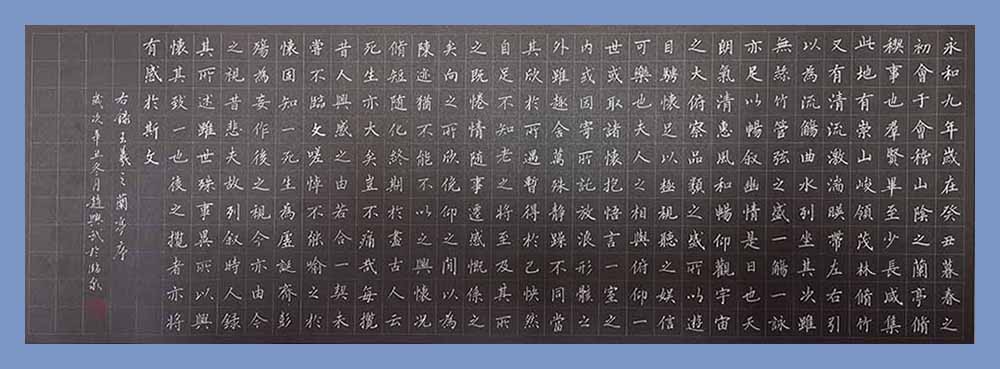 永和九年歲在癸丑暮春之
初會于會稽山陰之蘭亭脩
稧事也羣賢畢至少長咸集
此地有崇山峻領茂林脩竹
又有清流激湍暎帶左右引
以為流觴曲水列坐其次雖
無絲竹管弦之盛一觴一詠
亦足以暢叙幽情是日也天
朗氣清惠風和暢仰觀宇宙
之大俯察品類之盛所以遊
目騁懷足以極視聽之娛信
可樂也夫人之相與俯仰一
世或取諸懷抱悟言一室之
内或因寄所託放浪形骸之
外雖趣舍萬殊靜躁不同當
其欣於所遇暫得於己怏然
自足不知老之將至及其所
之既惓情隨事遷感慨係之
矣向之所欣俛仰之間以為
陳迹猶不能不以之興懷况
脩短隨化終期於盡古人云
死生亦大矣豈不痛哉每攬
昔人興感之由若合一契未
嘗不臨文嗟悼不能喻之於
懷固知一死生為虛誕齊彭
殤為妄作後之視今亦由今
之視昔悲夫故列叙時人錄
其所述雖世殊事異所以興
懷其致一也後之攬者亦將
有感於斯文
右錄王羲之蘭亭序
歲次辛丑月趙興武於臨